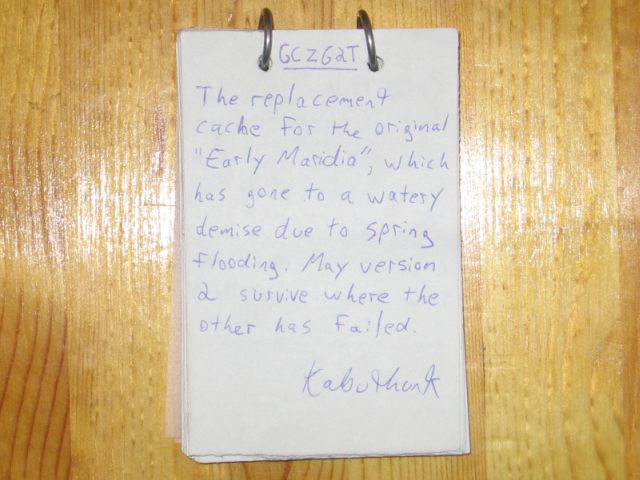 GCZG2T
The replacement
cache for the original
"Early Maridia", which
has gone to a watery
demise due to spring
flooding. May version
2 survive where the
other has failed.
Kabuthunk